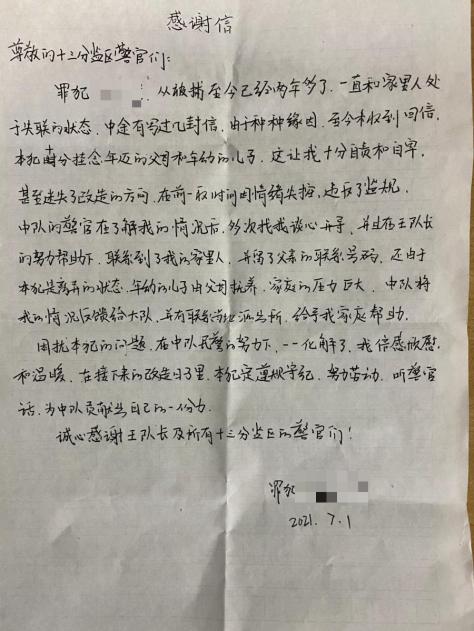 感谢信
尊敬的十三分监区警官们:
罪犯 ，从被捕至今已经两年多了，一直和家里人处
于失联的状态，中途有写过几封信，由于种种缘因，至今未收到回信，
本犯十分挂念年迈的父母和年幼的儿子，这让我十分自责和自卑，
甚至迷失了改造的方向，在前一段时间因情绪失控，违反了监规，
中队的警官在了解我的情况后，多次找我谈心开导，并且在王队长
的努力帮助下，联系到了我的家里人，并留了父亲的联系号码，还由于
本犯是离异的状态，年幼的儿子由父母抚养，家庭的压力巨大，中队将
我的情况反馈给大队，并有联系当地派出所，给予我家庭帮助。
困扰本犯的问题，在中队民警的努力下，一一化解了，我倍感欣慰
和温暖，在接下来的改造日子里，本犯定遵规守纪，努力劳动，听警官
话，为中队贡献出自己的一份力。
诚心感谢王队长及所有十三分监区的警官们！
罪犯
2021.7.1